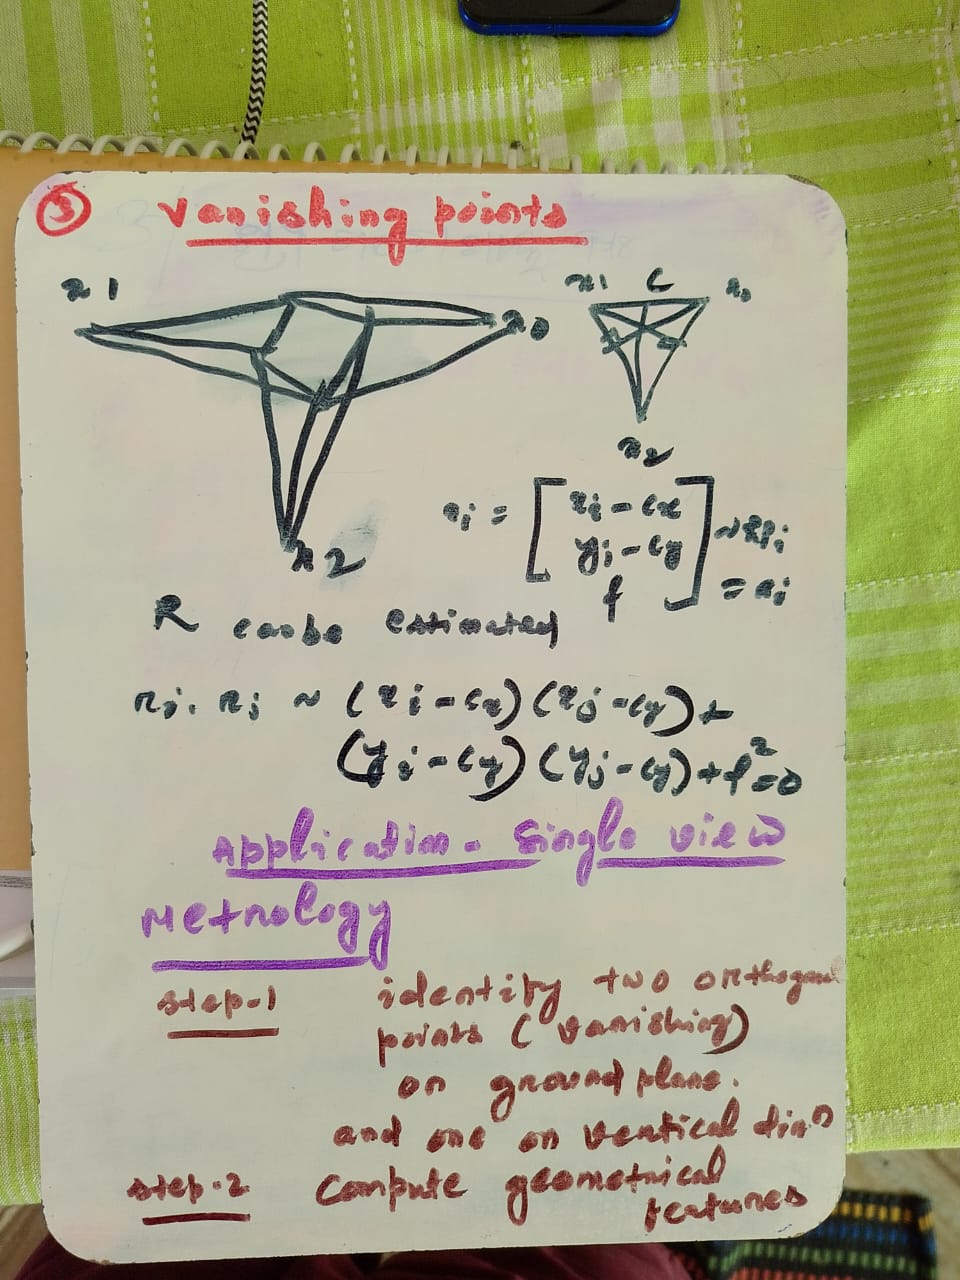 ③ Vanishing points
x1
x0
x2
x1 c x0
x2
xi = [ xi - cx
yi - cy
f ] ~ RPi
= ri
R can be estimated
ri . rj ~ (xi - cx) (xj - cy) +
(yi - cy) (yj - cy) + f² = 0
Application - Single view
Metrology
step-1 identify two orthogonal
points (vanishing)
on ground plane.
and one on vertical dirn
step-2 compute geometrical
features